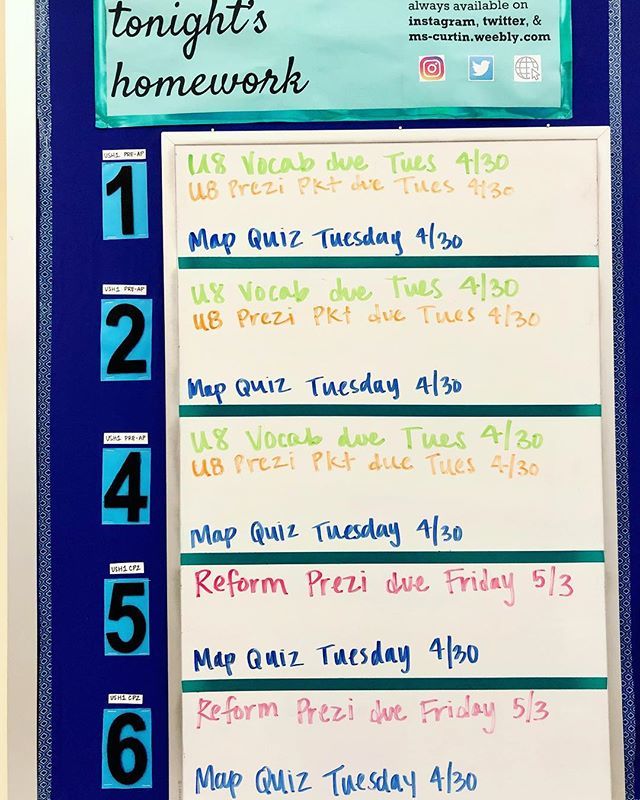 tonight's
homework
always available on
instagram, twitter, &
ms-curtin.weebly.com
USH1 PRE-AP
1
U8 Vocab due Tues 4/30
U8 Prezi Pkt due Tues 4/30
Map Quiz Tuesday 4/30
USH1 PRE-AP
2
U8 Vocab due Tues 4/30
U8 Prezi Pkt due Tues 4/30
Map Quiz Tuesday 4/30
USH1 PRE-AP
4
U8 Vocab due Tues 4/30
U8 Prezi Pkt due Tues 4/30
Map Quiz Tuesday 4/30
USH1 CP2
5
Reform Prezi due Friday 5/3
Map Quiz Tuesday 4/30
USH1 CP2
6
Reform Prezi due Friday 5/3
Map Quiz Tuesday 4/30